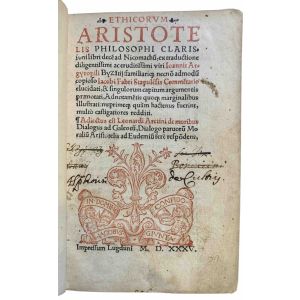 ETHICORVM
ARISTOTE
LIS PHILOSOPHI CLARIS-
simi libri decē ad Nicomachū, ex traductione
diligentissima ac eruditissimi viri Ioannis Ar
gyropili Byzātij familiariq; necnō admodū
copioso Iacobi Fabri Stapulēsis Commētario
elucidati, & singulorum capitum argumentis
prænotati, Adnotamētis quoq; marginalibus
illustrati: nuperrimeq; quàm hactenus fuerint,
multo castigatiores redditi.
¶ Adiectus est Leonardi Aretini de moribus
Dialogus ad Galeotū, Dialogo paruorū Mo
raliū Aristotelis ad Eudemiū ferè respōdens.
IN DOMINO CONFIDO
IACOBVS GIVNTA
Impressum Lugduni M. D. XXXV.